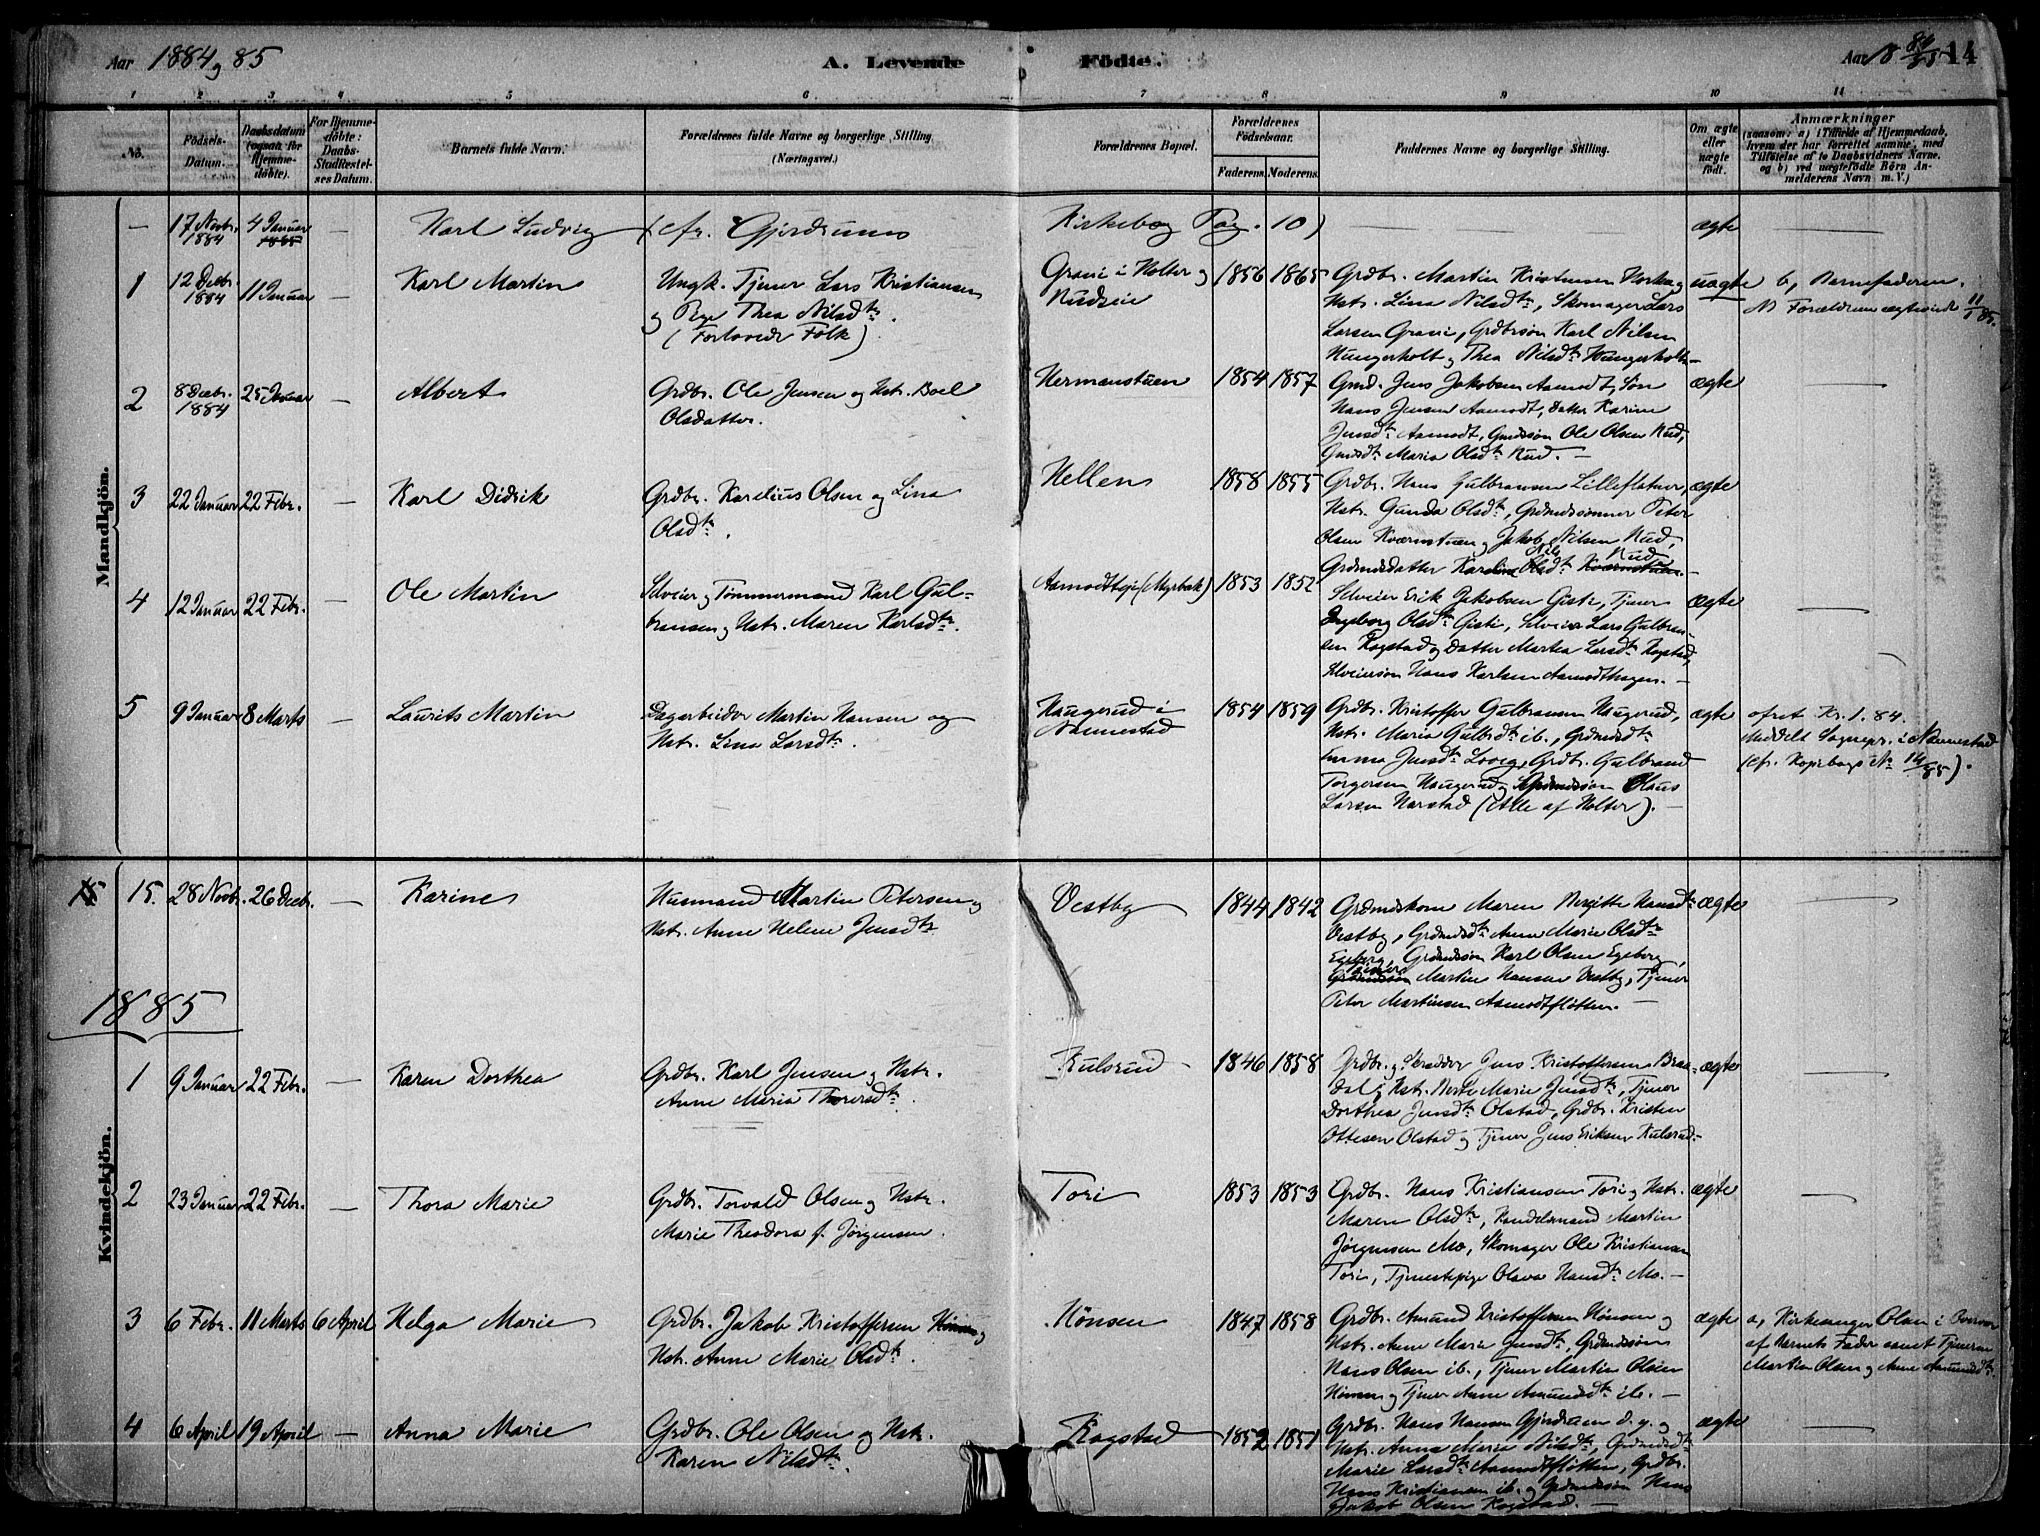 Aar 1884 og 85
A. Levende Födte.
Aar 18 84/85 14
1 2 3 4 5 6 7 8 9 10 11
No.
Födsels-Datum.
Daabsdatum (ogsaa for Hjemmedöbte).
For Hjemmedöbte: Daabs-Stadfæstelses Datum.
Barnets fulde Navn.
Forældrenes fulde Navne og borgerlige Stilling. (Næringsvei.)
Forældrenes Bopæl.
Forældrenes Födselsaar.
Faderens. Moderens.
Faddernes Navne og borgerlige Stilling.
Om ægte eller uægte födt.
Anmærkninger
(saasom: a) i Tilfælde af Hjemmedaab, hvem der har forrettet samme, med Tilföielse af to Daabsvidners Navne. og b) ved uægtefödte Börn Anmelderens Navn m. V.)
Mandkjön.
— 17 Novbr. 1884 4 Januar 1885 — Karl Ludvig (cfr. Gjerdrums Kirkebog Pag. 10) ægte
1 12 Decbr. 1884 11 Januar — Karl Martin
Ungk. Tjener Lars Kristiansen
og Pige Thea Nilsdtr.
(Forlovede Folk)
Grani i Holter og
Rudzen
1856 1865
Grdbr. Martin Kristiansen
Hstr. Lina Nilsdtr, Skomager Lars
Larsen Grani, Grdbrsøn Karl Nilsen
Hungerholt og Thea Nilsdtr Hungerholt —
uægte
b, Barnefaderen.
NB Forældrene ægteviede 11/1 85.
2 8 Decbr. 1884 25 Januar — Albert
Grdbr. Ole Jensen og Hstr. Boel
Olsdatter.
Hermanstuen 1854 1857
Gmd. Jens Jakobsen Aamodt, Søn
Hans Jensen Aamodt, Datter Karine
Jensdtr Aamodt, Gmdssøn Ole Olsen Rud,
Gmdsdtr Maria Olsdtr Rud. —
ægte —
3 22 Januar 22 Febr. — Karl Didrik
Grdbr. Karelius Olsen og Lina
Olsdtr.
Hellen 1858 1855
Grdbr. Hans Gulbransen Lilleflatner,
Hstr. Gunda Olsdtr, Grdmdssønner Peter
Olsen Kværnstuen og Jakob Nilsen Rud,
Nils Rud
Grdmdsdatter Karelina Olsdtr Kværnstuen.
ægte
4 12 Januar 22 Febr. — Ole Martin
Selveier og Tømmermand Karl Gul-
bransen og Hstr. Maren Karlsdtr.
Aamodteie (Myrbak) 1853 1852
Selveier Erik Jakobsen Gisti, Tjener
Ingeborg Olsdtr Gisti, Selveier Lars Gulbran-
sen Kogstad og Datter Martea Larsdtr Kogstad,
Selveiersøn Hans Karlsen Aamodthagen. —
ægte —
5 9 Januar 8 Marts — Laurits Martin
Dagarbeider Martin Hansen og
Hstr. Lina Larsdtr.
Haugerud i
Nannestad
1854 1859
Grdbr. Kristoffer Gulbransen Haugerud,
Hstr. Maria Gulbrdtr ib., Grdmdsdtr
Emma Jensdtr Lovig, Grdbr. Gulbrand
Torgersen Haugerud og Grdmdssøn Olaus
Larsen Harstad (Alle af Holter). —
ægte
ofret Kr. 1.84.
Meddelt Sognepr. i Nannestad
(cfr. Kopibogs No 14/85).
Kvindekjön.
15. 28 Novbr. 26 Decbr. — Karine
Husmand Martin Petersen og
Hstr. Anne Helene Jensdtr
Vestby 1844 1842
Grdmdskone Maren Birgitte Hansdtr
Vestby, Grdmdsdtr Anne Marie Olsdtr
Egeberg, Grdmdssøn Karl Olsen Egeberg,
Tjener
Grdmdssøn Martin Hansen Vestby, Tjener
Peter Martinsen Aamodtfløtten. —
ægte —
1885
1 9 Januar 22 Febr. — Karen Dorthea
Grdbr. Karl Jensen og Hstr.
Anne Maria Thorersdtr.
Kulsrud 1846 1858
Grdbr. og Skrædder Jens Kristoffersen Braa-
dal, Hstr. Berte Marie Jensdtr, Tjener
Dorthea Jensdtr Olstad, Grdbr. Kristen
Ottesen Olstad og Tjener Jens Eriksen Kulsrud. —
ægte —
2 23 Januar 22 Febr. — Thora Marie
Grdbr. Torvald Olsen og Hstr.
Marie Theodora f. Jørgensen.
Tori 1853 1853
Grdbr. Hans Kristiansen Tori og Hstr.
Maren Olsdtr, Handelsmand Martin
Jørgensen Mo, Skomager Ole Kristiansen
Tori, Tjenestepige Olava Hansdtr Mo. —
ægte —
3 6 Febr. 11 Marts 6 April Helga Marie
Grdbr. Jakob Kristoffersen Hønsen og
Hstr. Anne Marie Olsdtr.
Hønsen 1847 1858
Grdbr. Amund Kristoffersen Hønsen og
Hstr. Anne Marie Jensdtr, Grdmdssøn
Hans Olsen ib., Tjener Martin Olsen
Hønsen og Tjener Anne Amundsdtr ib. —
ægte
a, Kirkesanger Olsen i Overvær
af Barnets Fader samt Tjenerne
Martin Olsen og Anne Amundsdtr
4 6 April 19 April — Anna Marie
Grdbr. Ole Olsen og Hstr.
Karen Nilsdtr.
Kogstad 1852 1851
Grdbr. Hans Hansen Gjerdrum d. y. og
Hstr. Anna Maria Nilsdtr, Grdmdsdtr
Marie Larsdtr Aamodtfløtten, Grdbr.
Hans Kristiansen ib. og Grdmdssøn Hans
Jakob Olsen Kogstad. —
ægte —